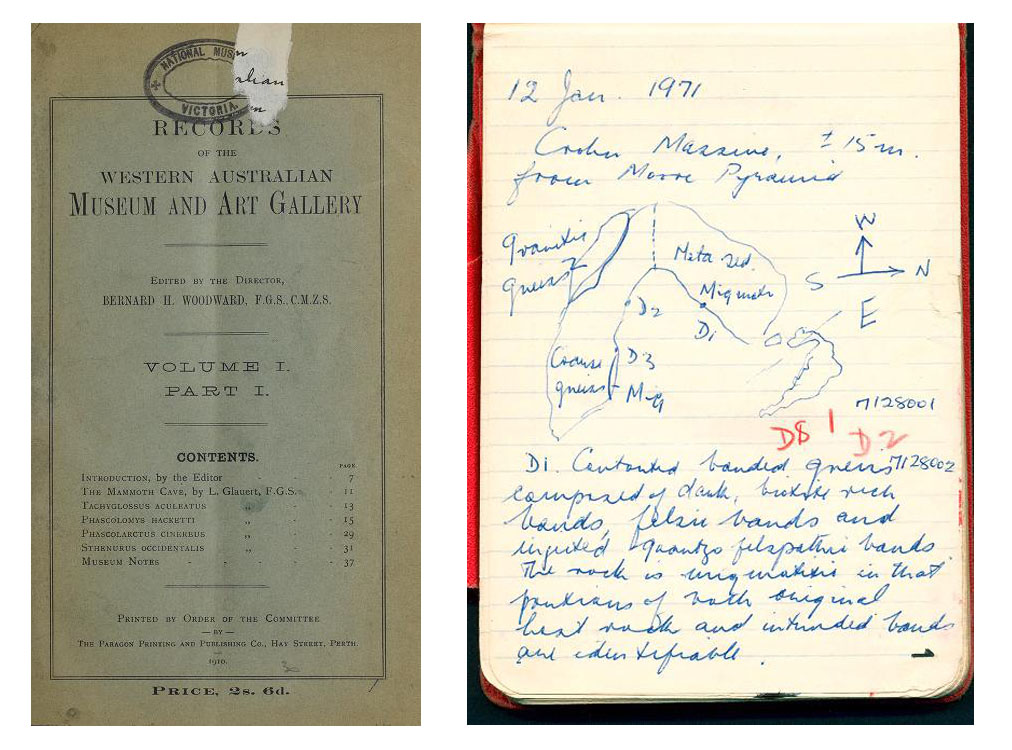 NATIONAL MUS
VICTORIA
n
alian
m
RECORDS
OF THE
WESTERN AUSTRALIAN
MUSEUM AND ART GALLERY
EDITED BY THE DIRECTOR,
BERNARD H. WOODWARD, F.G.S., C.M.Z.S.
VOLUME I.
PART I.
CONTENTS.
PAGE
INTRODUCTION, by the Editor - - 7
THE MAMMOTH CAVE, by L. Glauert, F.G.S. 11
TACHYGLOSSUS ACULEATUS „ - 13
PHASCOLOMYS HACKETTI „ - - 15
PHASCOLARCTUS CINEREUS „ - - 29
STHENURUS OCCIDENTALIS „ - - 31
MUSEUM NOTES - - - - - 37
PRINTED BY ORDER OF THE COMMITTEE
— BY —
THE PARAGON PRINTING AND PUBLISHING CO., HAY STREET, PERTH.
1910.
30
PRICE, 2s. 6d.
12 Jan. 1971
Massive, ± 15 m.
from Pyramid
granitic
gneiss
Meta sed.
Migmatite
D2
D1
Coarse
gneiss
D3
Mig
W
S N
E
7128001
D8 1 D2
7128002
D1. Contorted banded gneiss
comprised of dark, biotite rich
bands, felsic bands and
injected quartzo felspathic bands
The rock is migmatitic in that
portions of both original
host rock and intruded bands
are identifiable.